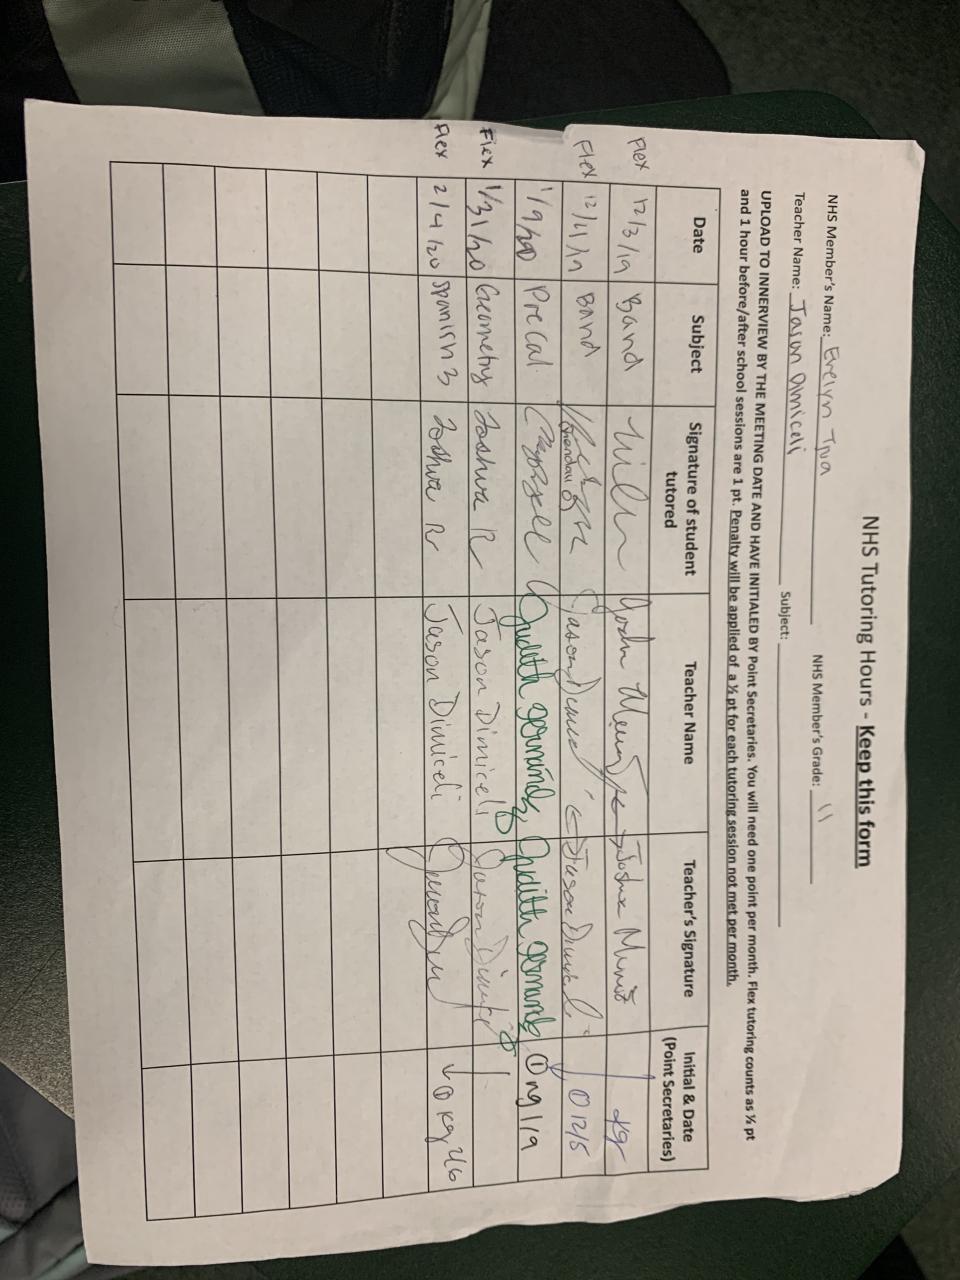 NHS Tutoring Hours - Keep this form
NHS Member's Name: Evelyn NHS Member's Grade: 11
Teacher Name: Jason Dimiceli Subject:
UPLOAD TO INNERVIEW BY THE MEETING DATE AND HAVE INITIALED BY Point Secretaries. You will need one point per month. Flex tutoring counts as ½ pt
and 1 hour before/after school sessions are 1 pt. Penalty will be applied of a ½ pt for each tutoring session not met per month.
Date Subject Signature of student tutored Teacher Name Teacher's Signature Initial & Date (Point Secretaries)
Flex 12/3/19 Band Joshua kg
Flex 12/4/19 Band Jason Jason 12/5
1/9/20 PreCal Judith Judith 1 ng 1/9
Flex 1/31/20 Geometry Joshua R Jason Dimiceli Jason
Flex 2/4/20 Spanish 3 Joshua Rr Jason Dimiceli kg 2/6